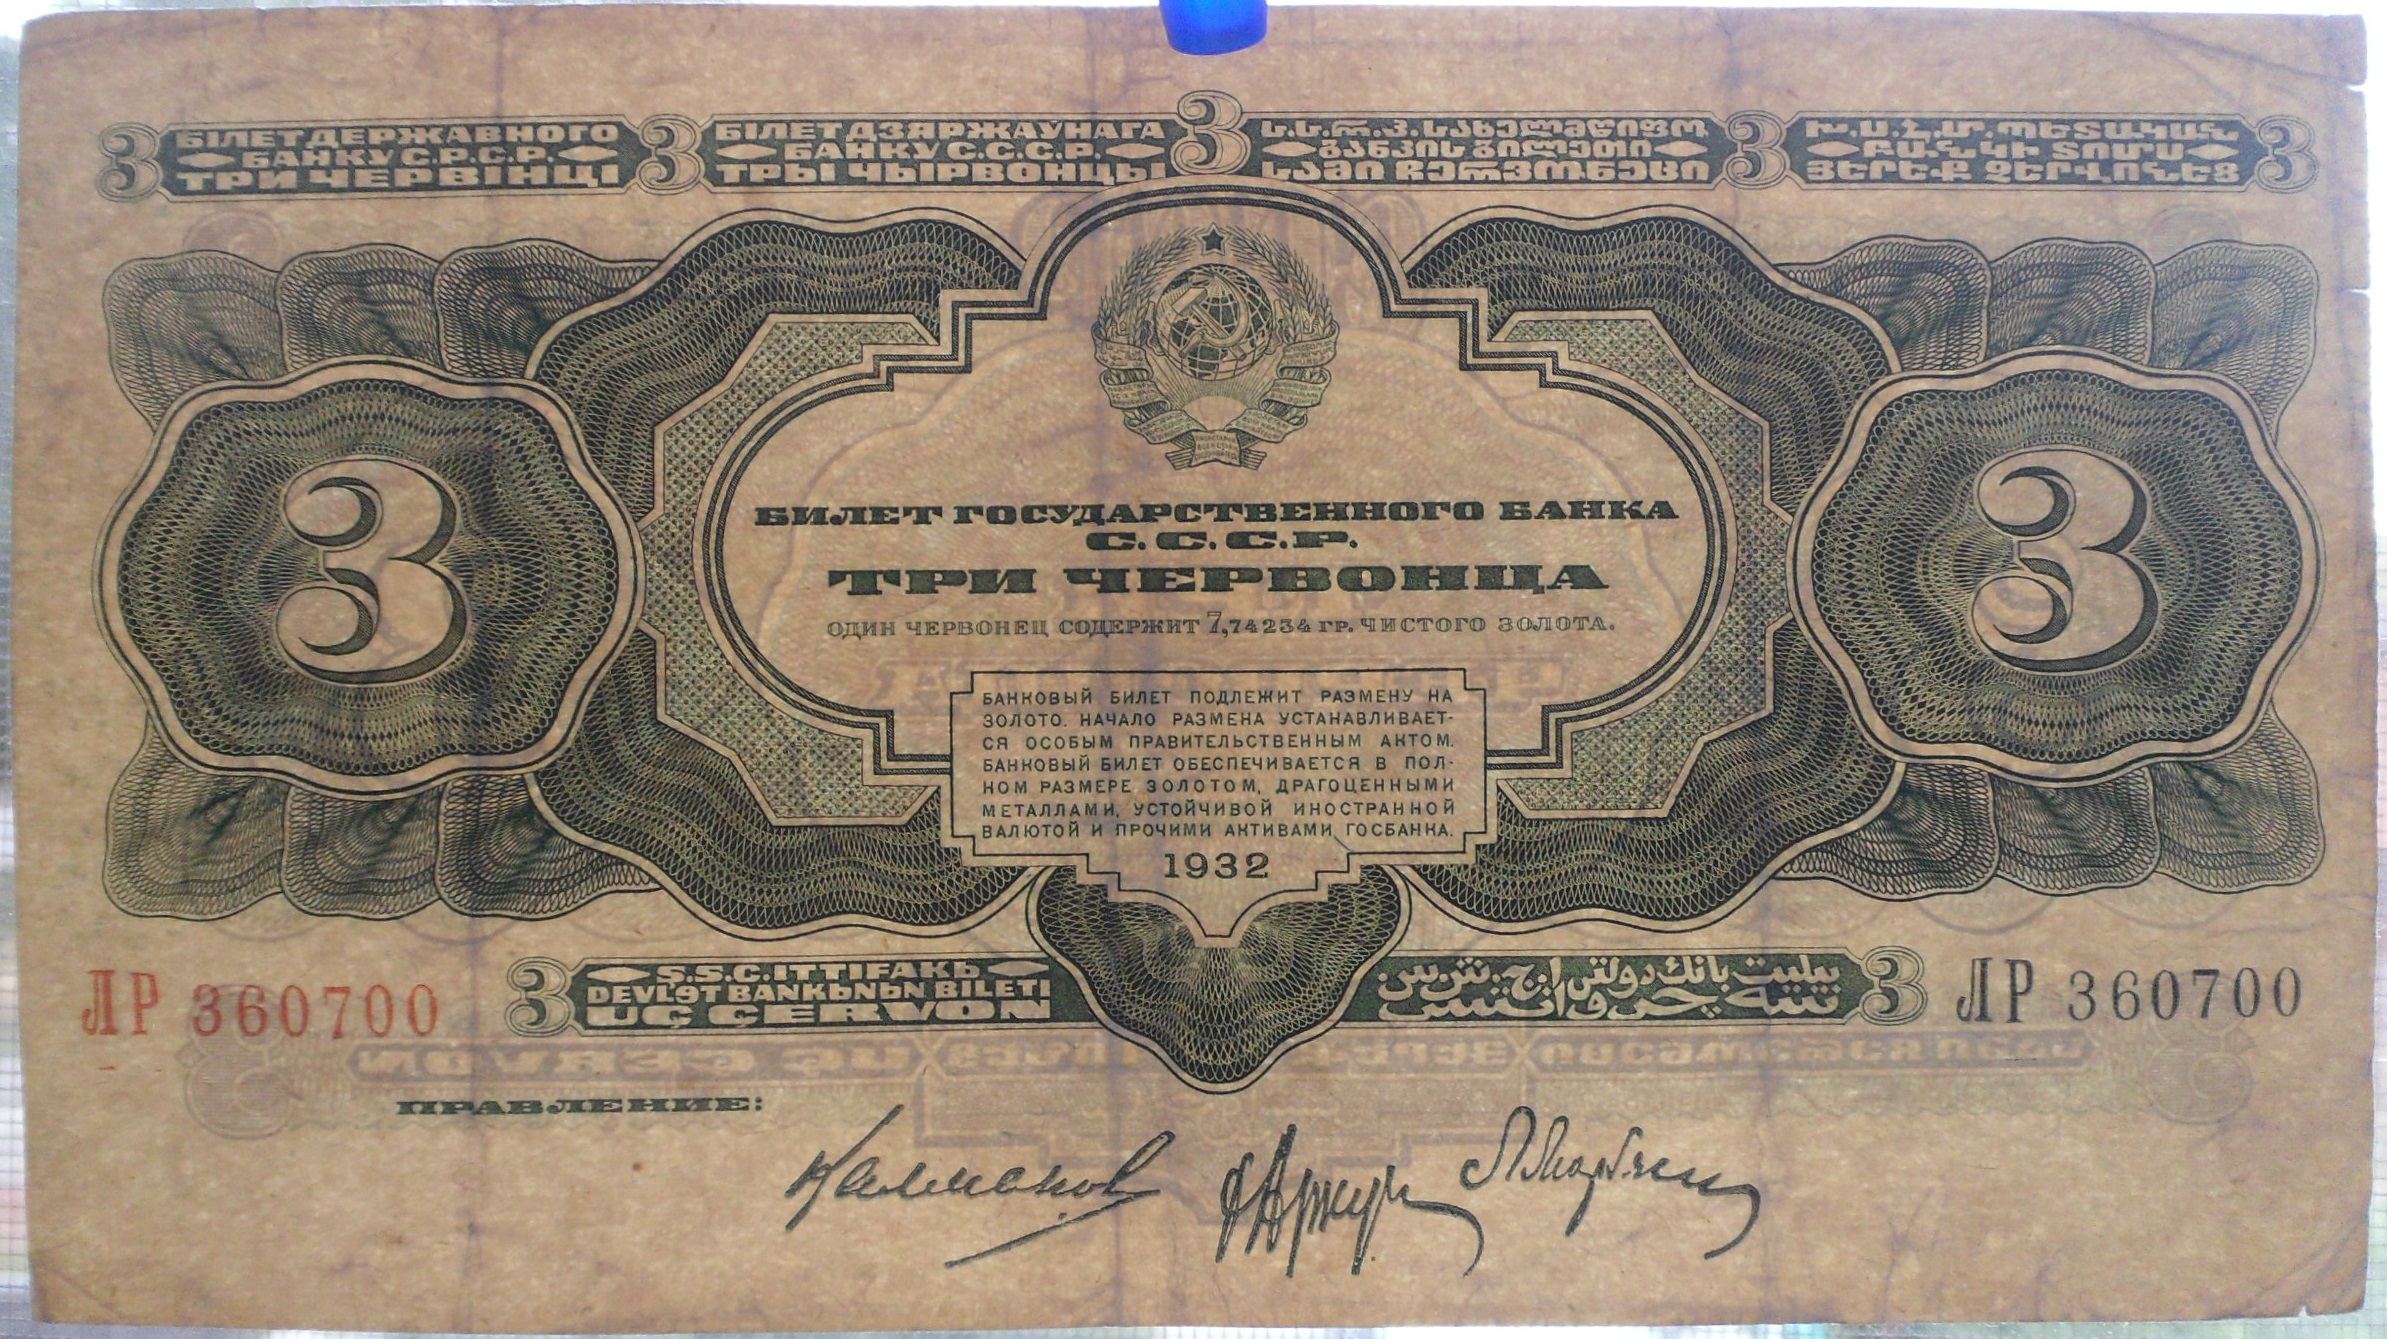 3 БІЛЕТ ДЕРЖАВНОГО
БАНКУ С.Р.С.Р.
ТРИ ЧЕРВІНЦІ
3 БІЛЕТ ДЗЯРЖАЎНАГА
БАНКУ С.С.С.Р.
ТРЫ ЧЫРВОНЦЫ
3 ს.ს.რ.კ. სახელმწიფო
ბანკის ბილეთი
სამი ჩერვონეცი
3 Խ.Ս.Հ.Մ. ՊԵՏԱԿԱՆ
ԲԱՆԿԻ ՏՈՄՍ
ՅԵՐԵՔ ՉԵՐՎՈՆԵՑ 3
БИЛЕТ ГОСУДАРСТВЕННОГО БАНКА
С. С. С. Р.
3 ТРИ ЧЕРВОНЦА 3
ОДИН ЧЕРВОНЕЦ СОДЕРЖИТ 7,74234 ГР. ЧИСТОГО ЗОЛОТА.
БАНКОВЫЙ БИЛЕТ ПОДЛЕЖИТ РАЗМЕНУ НА
ЗОЛОТО. НАЧАЛО РАЗМЕНА УСТАНАВЛИВАЕТ-
СЯ ОСОБЫМ ПРАВИТЕЛЬСТВЕННЫМ АКТОМ.
БАНКОВЫЙ БИЛЕТ ОБЕСПЕЧИВАЕТСЯ В ПОЛ-
НОМ РАЗМЕРЕ ЗОЛОТОМ, ДРАГОЦЕННЫМИ
МЕТАЛЛАМИ, УСТОЙЧИВОЙ ИНОСТРАННОЙ
ВАЛЮТОЙ И ПРОЧИМИ АКТИВАМИ ГОСБАНКА.
1932
ЛР 360700
3 S.S.C. ITTIFAKЬ
DEVLƏT BANKЬNЬN BILETI
UÇ ÇERVON
بيليت بانك دولتى ا.ج.ش.س.
3
ЛР 360700
ПРАВЛЕНИЕ:
Калманов